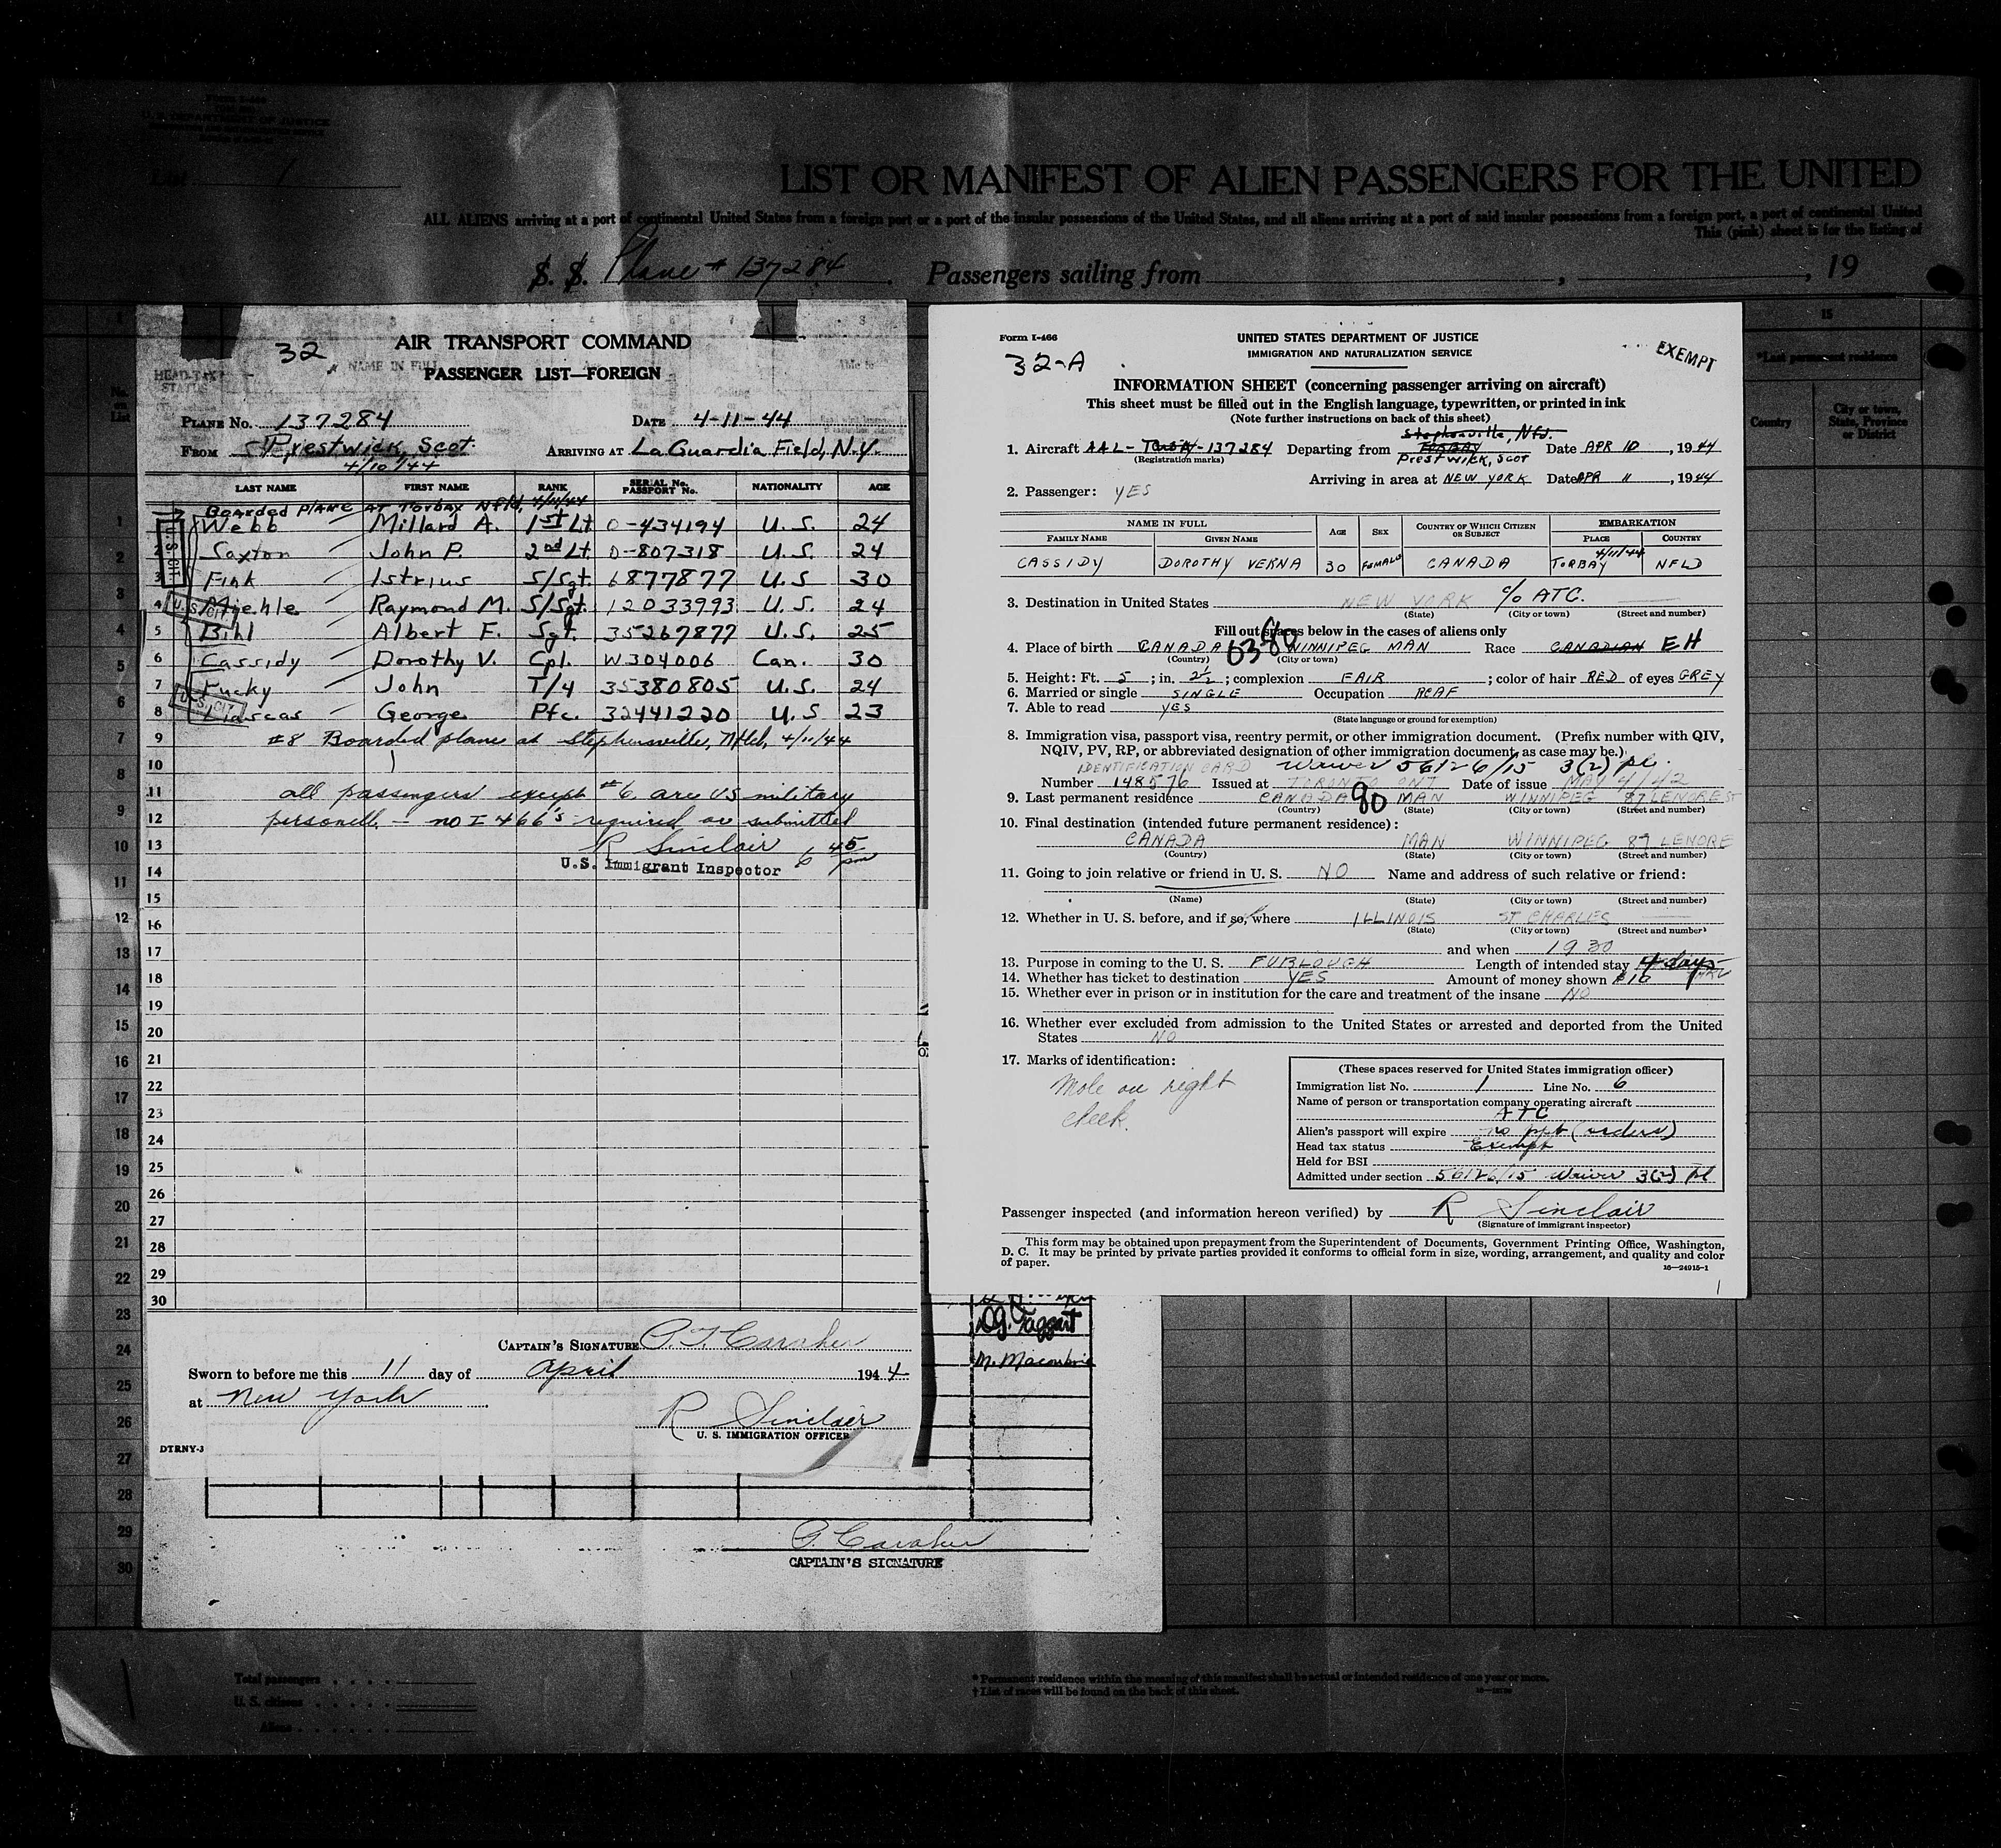 U. S. DEPARTMENT OF JUSTICE
List 1
LIST OR MANIFEST OF ALIEN PASSENGERS FOR THE UNITED
ALL ALIENS arriving at a port of continental United States from a foreign port or a port of the insular possessions of the United States, and all aliens arriving at a port of said insular possessions from a foreign port, a port of continental United
This (pink) sheet is for the listing of
S. S. Plane # 137284 Passengers sailing from , , 19
32
AIR TRANSPORT COMMAND
NAME IN FULL
HEAD-TAX STATUS
PASSENGER LIST—FOREIGN
PLANE No. 137284 DATE 4-11-44
FROM Prestwick, Scot. ARRIVING AT La Guardia Field, N.Y.
4/10/44
LAST NAME FIRST NAME RANK SERIAL No. PASSPORT No. NATIONALITY AGE
Boarded plane at Torbay Nfld, 4/11/44
1 Webb Millard A. 1st Lt. O-434194 U.S. 24
2 Saxton John P. 2nd Lt. O-807318 U.S. 24
3 Fink Istrius S/Sgt. 6877877 U.S 30
4 Miehle Raymond M. S/Sgt. 12033993 U.S. 24
5 Bihl Albert F. Sgt. 35267877 U.S. 25
6 Cassidy Dorothy V. Cpl. W304006 Can. 30
7 Fucky John T/4 35380805 U.S. 24
8 George Pfc. 32441220 U.S 23
U.S. CIT.
U.S. CIT.
U.S. CIT.
9 #8 Boarded plane at Stephensville, Nfld, 4/11/44
10
11 all passengers except #6 are US military
12 personell. - no I 466's required or submitted
13 R Sinclair 6 45 pm
14 U.S. Immigrant Inspector
15
16
17
18
19
20
21
22
23
24
25
26
27
28
29
30
CAPTAIN'S SIGNATURE P.T. Caraher
Sworn to before me this 11 day of April 1944
at New York
R Sinclair
U. S. IMMIGRATION OFFICER
DTRNY-3
D.G. Taggart
P. Caraher
CAPTAIN'S SIGNATURE
Form I-466
UNITED STATES DEPARTMENT OF JUSTICE
IMMIGRATION AND NATURALIZATION SERVICE
EXEMPT
32-A
INFORMATION SHEET (concerning passenger arriving on aircraft)
This sheet must be filled out in the English language, typewritten, or printed in ink
(Note further instructions on back of this sheet)
Stephenville, Nfd.
1. Aircraft AAL - Torbay - 137284 Departing from TORBAY Date APR 10, 1944
(Registration marks) PRESTWICK, SCOT
Arriving in area at NEW YORK Date APR 11, 1944
2. Passenger: YES
NAME IN FULL AGE SEX COUNTRY OF WHICH CITIZEN OR SUBJECT EMBARKATION
FAMILY NAME GIVEN NAME PLACE COUNTRY
CASSIDY DOROTHY VERNA 30 FEMALE CANADA 4/11/44 TORBAY NFLD
3. Destination in United States NEW YORK c/o ATC.
(State) (City or town) (Street and number)
Fill out spaces below in the cases of aliens only
4. Place of birth CANADA WINNIPEG MAN Race CANADIAN EH
(Country) (City or town)
5. Height: Ft. 5; in. 2½; complexion FAIR; color of hair RED of eyes GREY
6. Married or single SINGLE Occupation RCAF
7. Able to read YES
(State language or ground for exemption)
8. Immigration visa, passport visa, reentry permit, or other immigration document. (Prefix number with QIV,
NQIV, PV, RP, or abbreviated designation of other immigration document, as case may be.)
IDENTIFICATION CARD Waiver 56126/15 3(2) pl.
Number 148576 Issued at TORONTO ONT Date of issue MAY 4/42
9. Last permanent residence CANADA 90 MAN WINNIPEG 87 LENORE ST
(Country) (State) (City or town) (Street and number)
10. Final destination (intended future permanent residence):
CANADA MAN WINNIPEG 87 LENORE
(Country) (State) (City or town) (Street and number)
11. Going to join relative or friend in U. S. NO Name and address of such relative or friend:
(Name) (State) (City or town) (Street and number)
12. Whether in U. S. before, and if so, where ILLINOIS ST CHARLES
(State) (City or town) (Street and number)
and when 1930
13. Purpose in coming to the U. S. FURLOUGH Length of intended stay 4 days
14. Whether has ticket to destination YES Amount of money shown $10
15. Whether ever in prison or in institution for the care and treatment of the insane NO
16. Whether ever excluded from admission to the United States or arrested and deported from the United
States NO
17. Marks of identification:
Mole on right
cheek.
(These spaces reserved for United States immigration officer)
Immigration list No. 1 Line No. 6
Name of person or transportation company operating aircraft
ATC
Alien's passport will expire no ppt (orders)
Head tax status Exempt
Held for BSI
Admitted under section 56126/15 Waiver 3(2) pl
Passenger inspected (and information hereon verified) by R Sinclair
(Signature of immigrant inspector)
This form may be obtained upon prepayment from the Superintendent of Documents, Government Printing Office, Washington,
D. C. It may be printed by private parties provided it conforms to official form in size, wording, arrangement, and quality and color
of paper.
16—24915-1
15
*Last permanent residence
Country City or town, State, Province or District
Total passengers
U. S. citizens
Aliens
* Permanent residence within the meaning of this manifest shall be actual or intended residence of one year or more.
† List of races will be found on the back of this sheet.